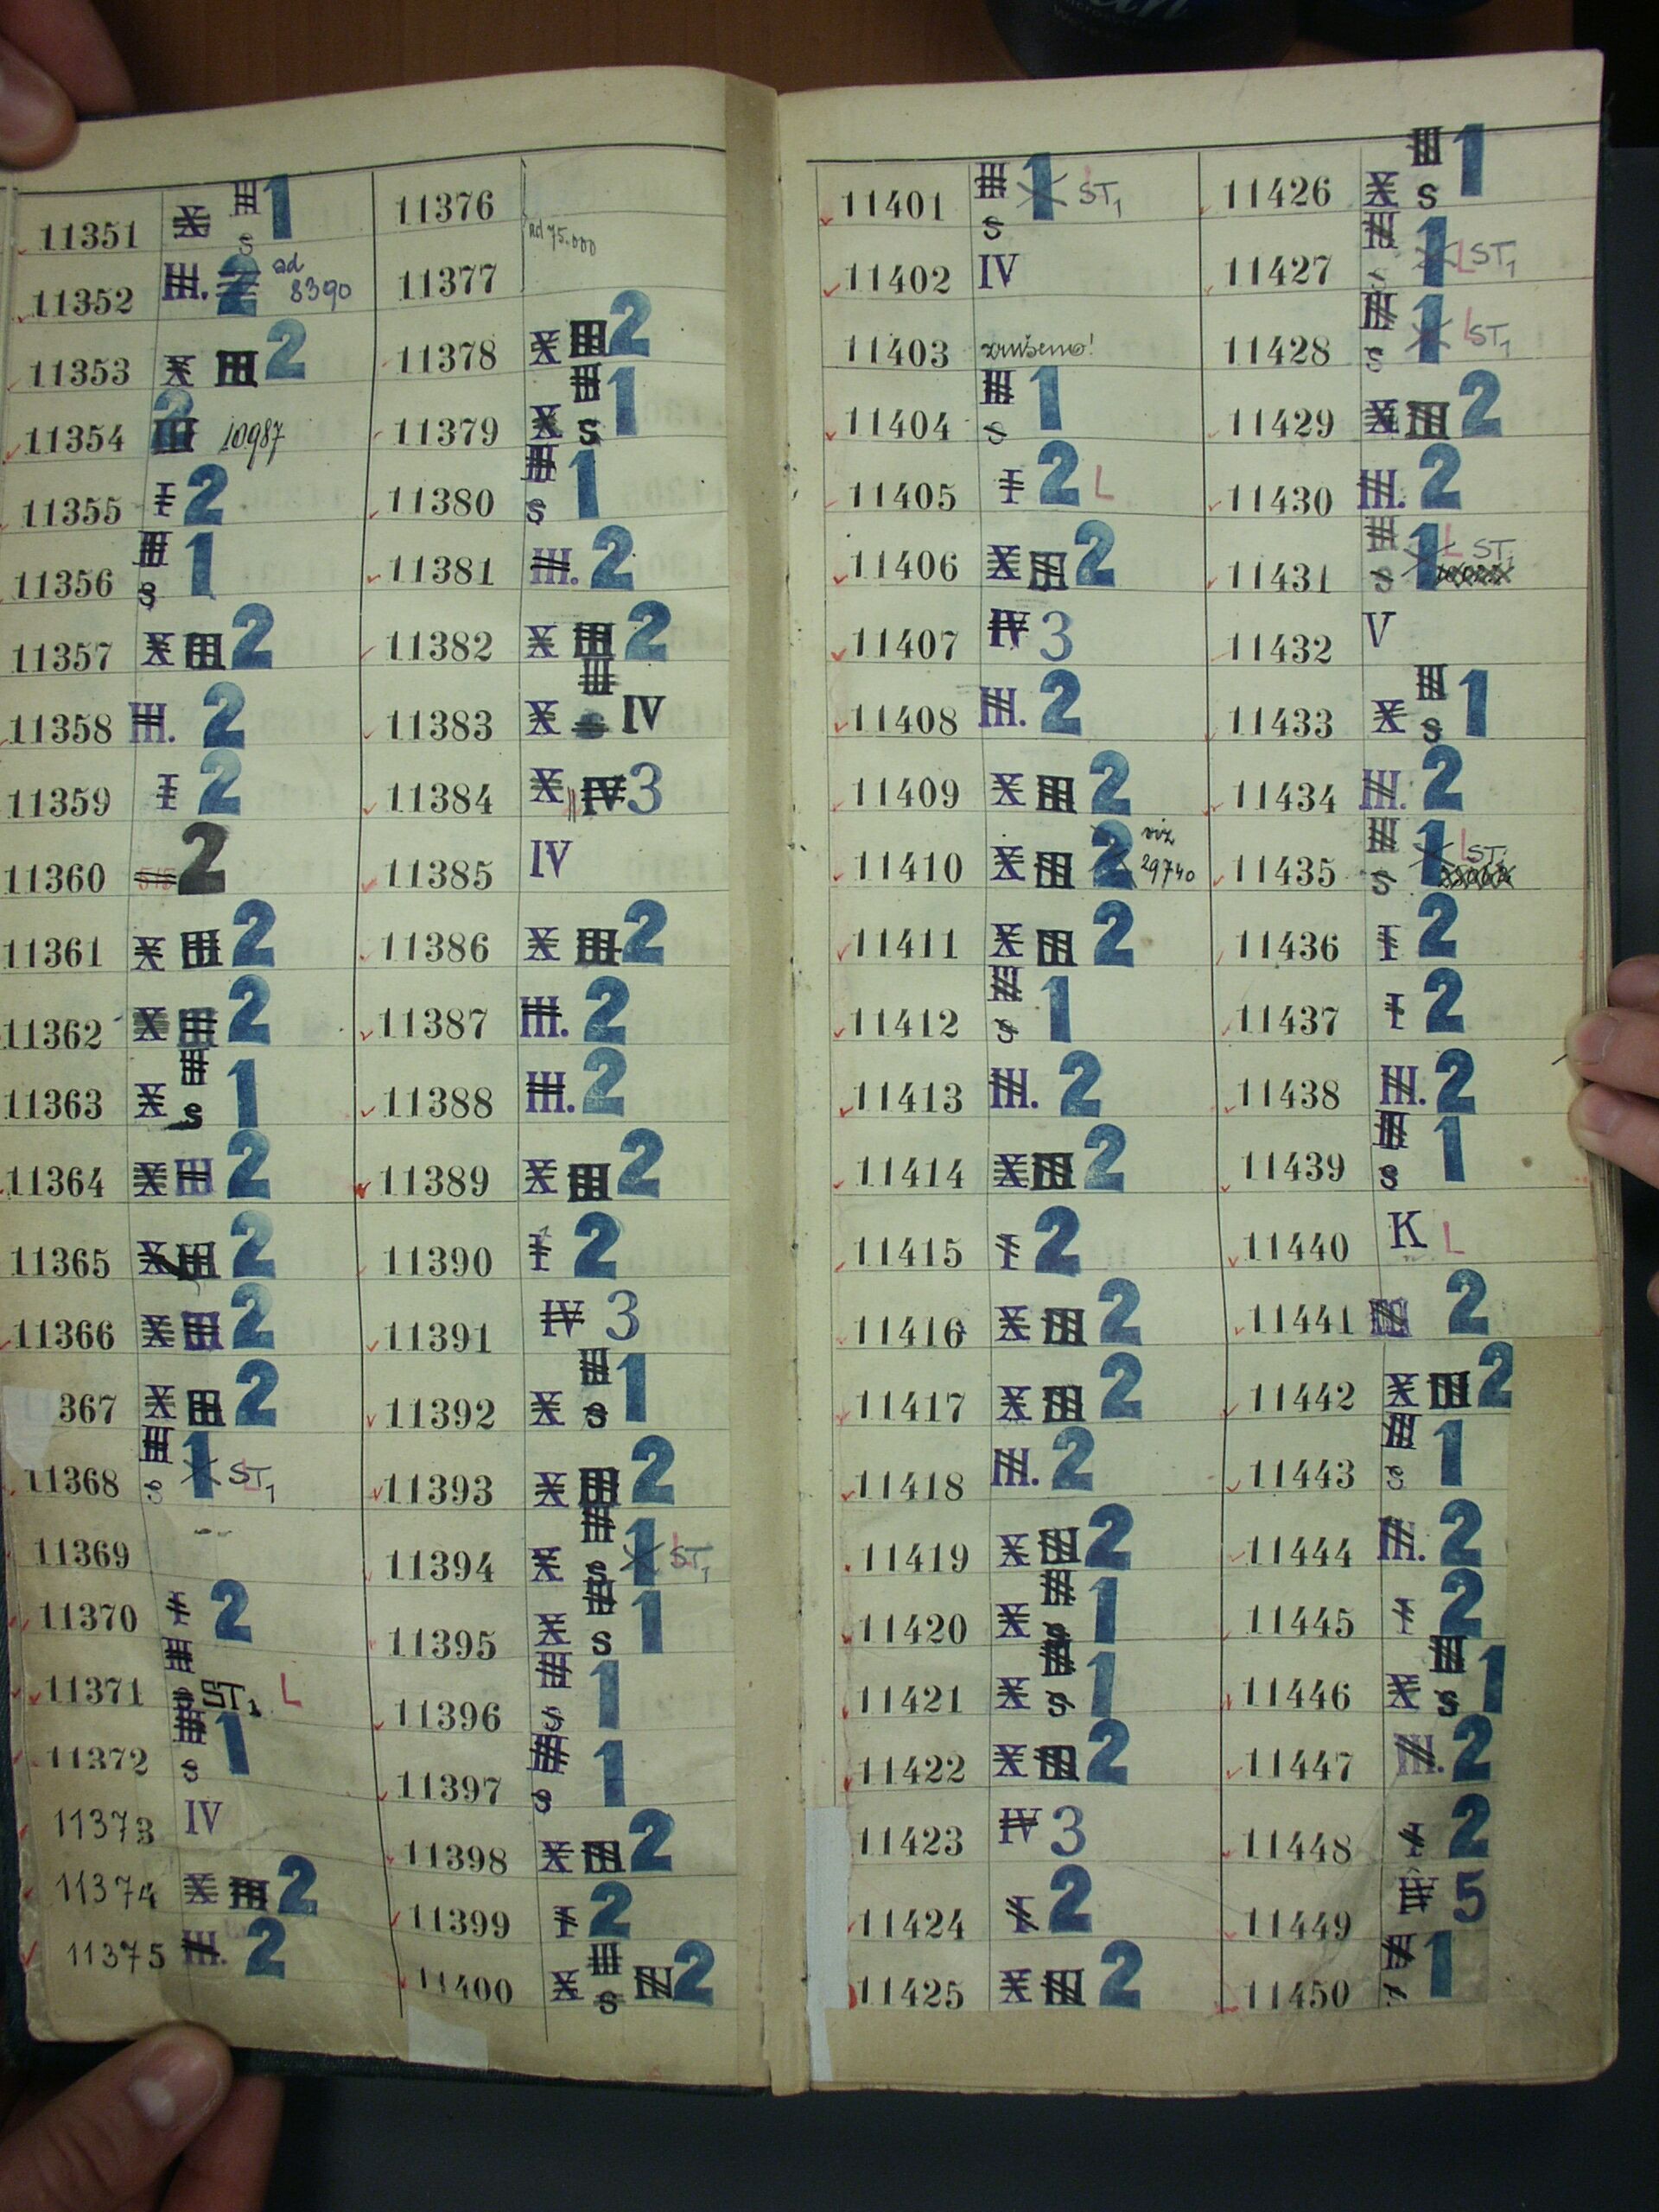 11351 X III s 1
11352 III. 2 ad 8390
11353 X III 2
11354 III 2 10987
11355 I 2
11356 III s 1
11357 X III 2
11358 III. 2
11359 I 2
11360 2
11361 X III 2
11362 X III 2
11363 X III s 1
11364 X III 2
11365 X III 2
11366 X III 2
367 X III 2
11368 III s 1 ST1 L
11369
11370 I 2
11371 III s ST1 L
11372 III s 1
11373 IV
11374 X III 2
11375 III. 2
11376
ad 75.000
11377
11378 X III 2
11379 X III s 1
11380 III s 1
11381 III. 2
11382 X III 2
11383 X III s IV
11384 X IV 3
11385 IV
11386 X III 2
11387 III. 2
11388 III. 2
11389 X III 2
11390 I 2
11391 IV 3
11392 X III s 1
11393 X III 2
11394 X III s 1 L ST1
11395 X III s 1
11396 III s 1
11397 III s 1
11398 X III 2
11399 I 2
11400 X III s III 2
11401 III s 1 L ST1
11402 IV
11403 zrušeno!
11404 III s 1
11405 I 2 L
11406 X III 2
11407 IV 3
11408 III. 2
11409 X III 2
11410 X III 2 viz 29740
11411 X III 2
11412 III s 1
11413 III. 2
11414 X III 2
11415 I 2
11416 X III 2
11417 X III 2
11418 III. 2
11419 X III 2
11420 X III s 1
11421 X III s 1
11422 X III 2
11423 IV 3
11424 I 2
11425 X III 2
11426 X III s 1
11427 III s 1 L ST1
11428 III s 1 L ST1
11429 X III 2
11430 III. 2
11431 III s 1 L ST1
11432 V
11433 X III s 1
11434 III. 2
11435 III s 1 L ST1
11436 I 2
11437 I 2
11438 III. 2
11439 III s 1
11440 K L
11441 III 2
11442 X III 2
11443 III s 1
11444 III. 2
11445 I 2
11446 X III s 1
11447 III. 2
11448 I 2
11449 IV 5
11450 III s 1